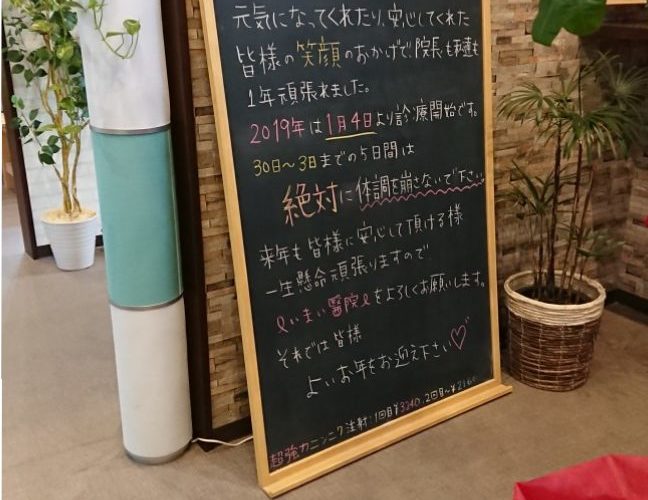 元気になってくれたり、安心してくれた
皆様の笑顔のおかげで、院長も
1年頑張れました。
2019年は1月4日より診療開始です。
30日〜3日までの5日間は
絶対に体調を崩さないで下さい
来年も皆様に安心して頂ける様
一生懸命頑張りますので
いまい醫院をよろしくお願いします。
それでは皆様
よいお年をお迎え下さい♡
超強力ニンニク注射:1回目¥3240、2回目〜¥2160